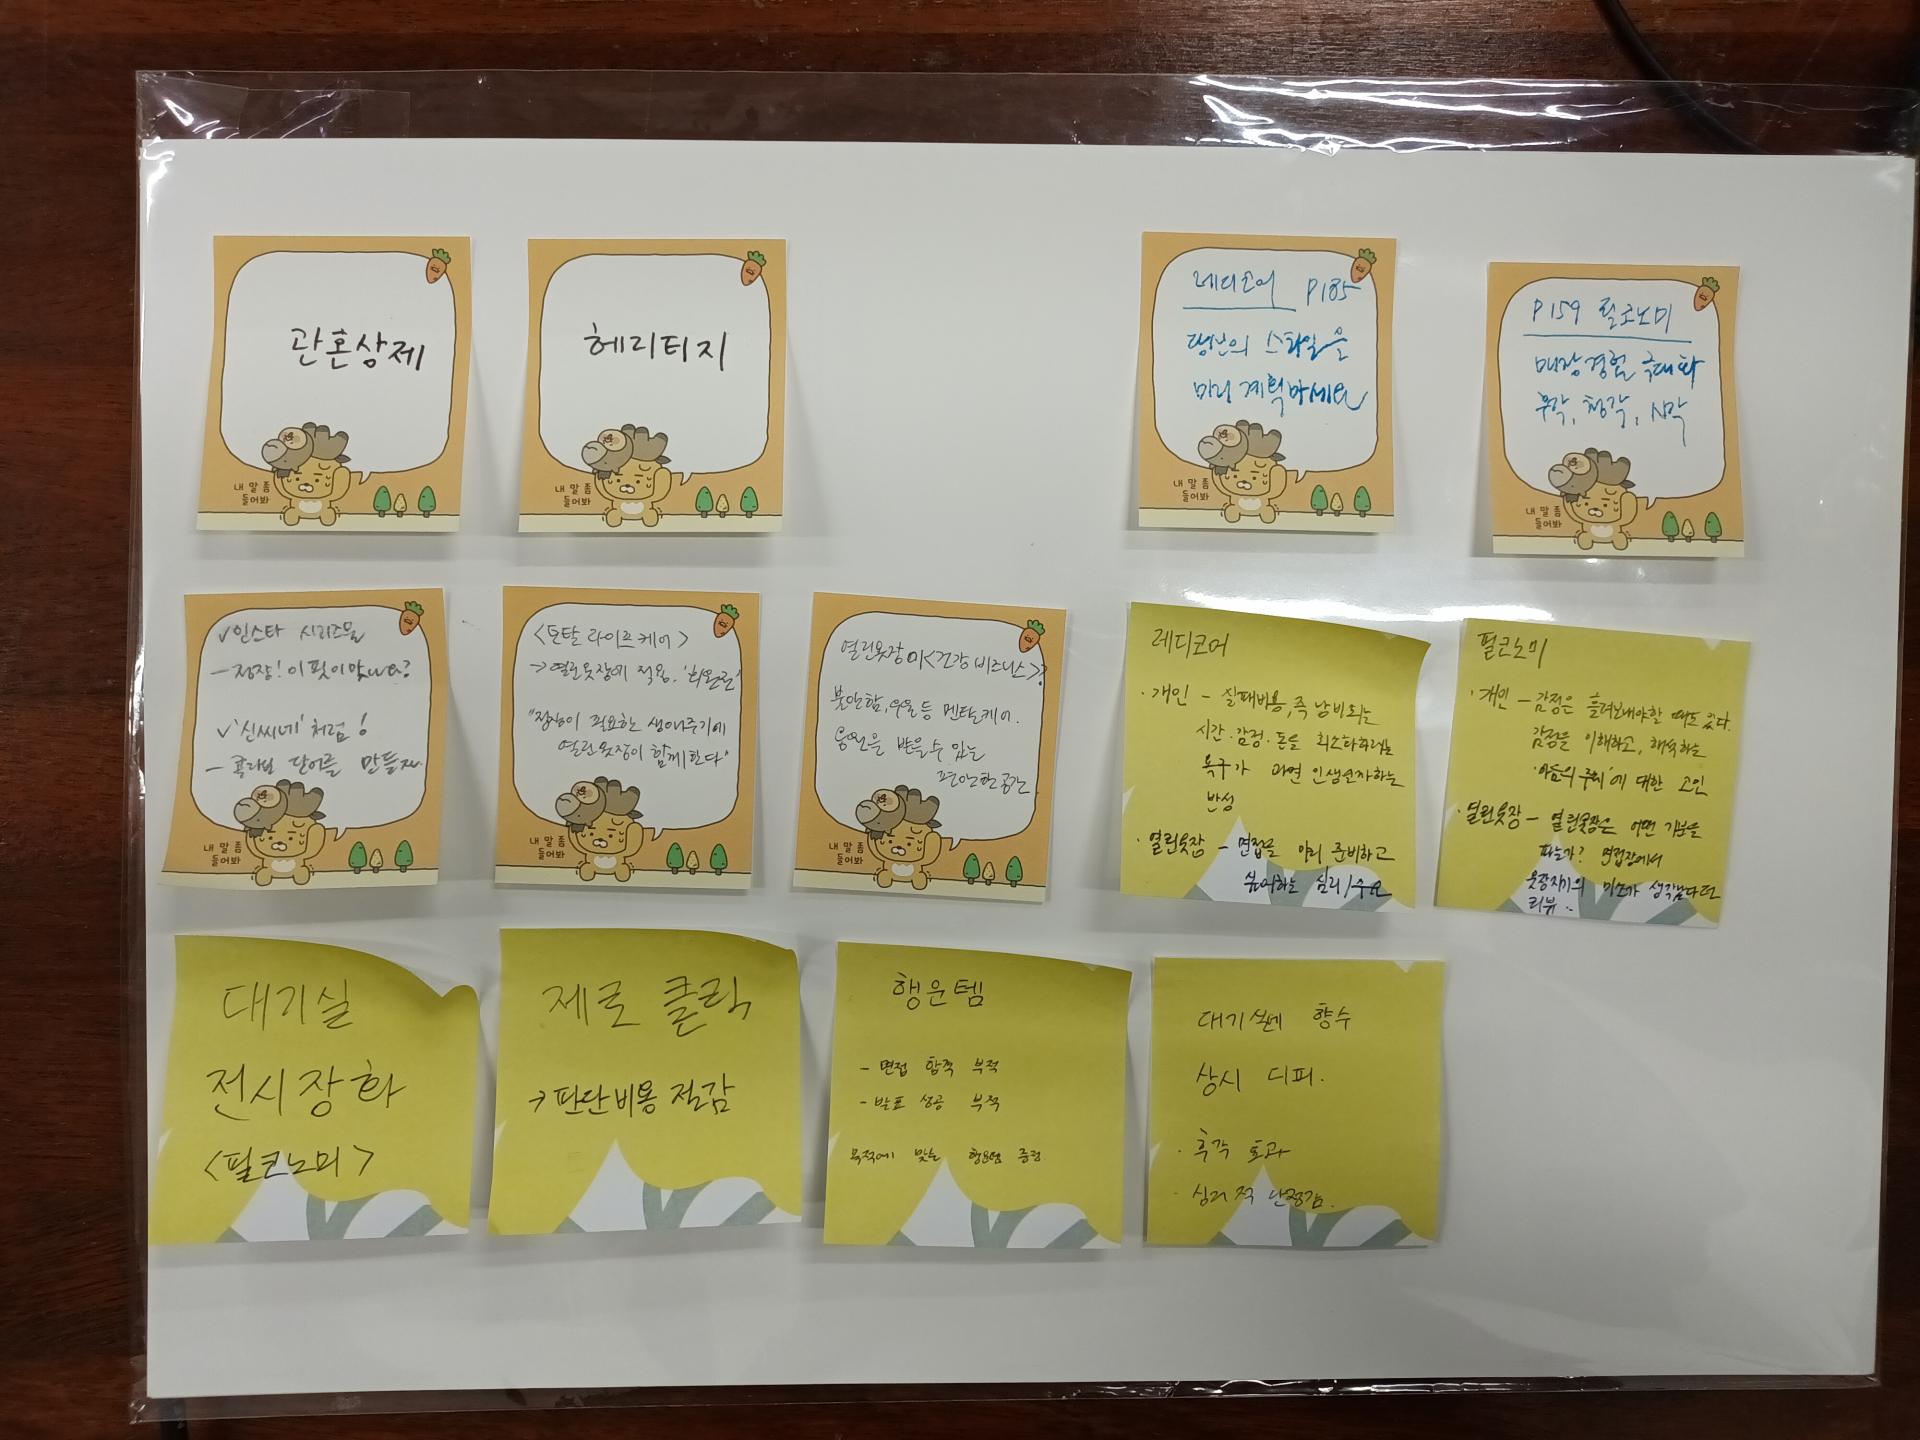 관혼상제
내 말 좀
들어봐
헤리티지
내 말 좀
들어봐
레디코어 P185
당신의 스타일을
미리 계획하세요
내 말 좀
들어봐
P159 필코노미
매장경험 극대화
후각, 청각, 시각
내 말 좀
들어봐
✓인스타 시리즈물
- 정장! 이 핏이 맞나요?
✓'신씨네'처럼!
- 콜라보 단어를 만들자.
내 말 좀
들어봐
<토탈 라이프 케어>
→열린옷장에 적용.
"정장이 필요한 생애주기에
열린옷장이 함께한다"
내 말 좀
들어봐
열린옷장이 <건강 비즈니스>?
불안함, 우울 등 멘탈케어.
응원을 받을 수 있는
편안한 공간.
내 말 좀
들어봐
레디코어
· 개인 - 실패비용, 즉 낭비되는
시간·감정·돈을 최소화하려는
욕구가 과연 인생설계자하는
반성
· 열린옷장 - 면접을 미리 준비하고
싶어하는 심리/수요
필코노미
· 개인 - 감정은 흘려보내야할 때도 있다.
감정을 이해하고, 해석하는
'마음의 주체'에 대한 고민
· 열린옷장 - 열린옷장은 어떤 기분을
파는가? 면접장에서
옷장지기의 미소가 생각난다던
리뷰..
대기실
전시장화
<필코노미>
제로 클릭
→ 판단비용 절감
행운템
- 면접 합격 부적
- 발표 성공 부적
목적에 맞는 행운템 증정.
대기실에 향수
상시 디피.
· 후각 효과
· 심리적 안정감.